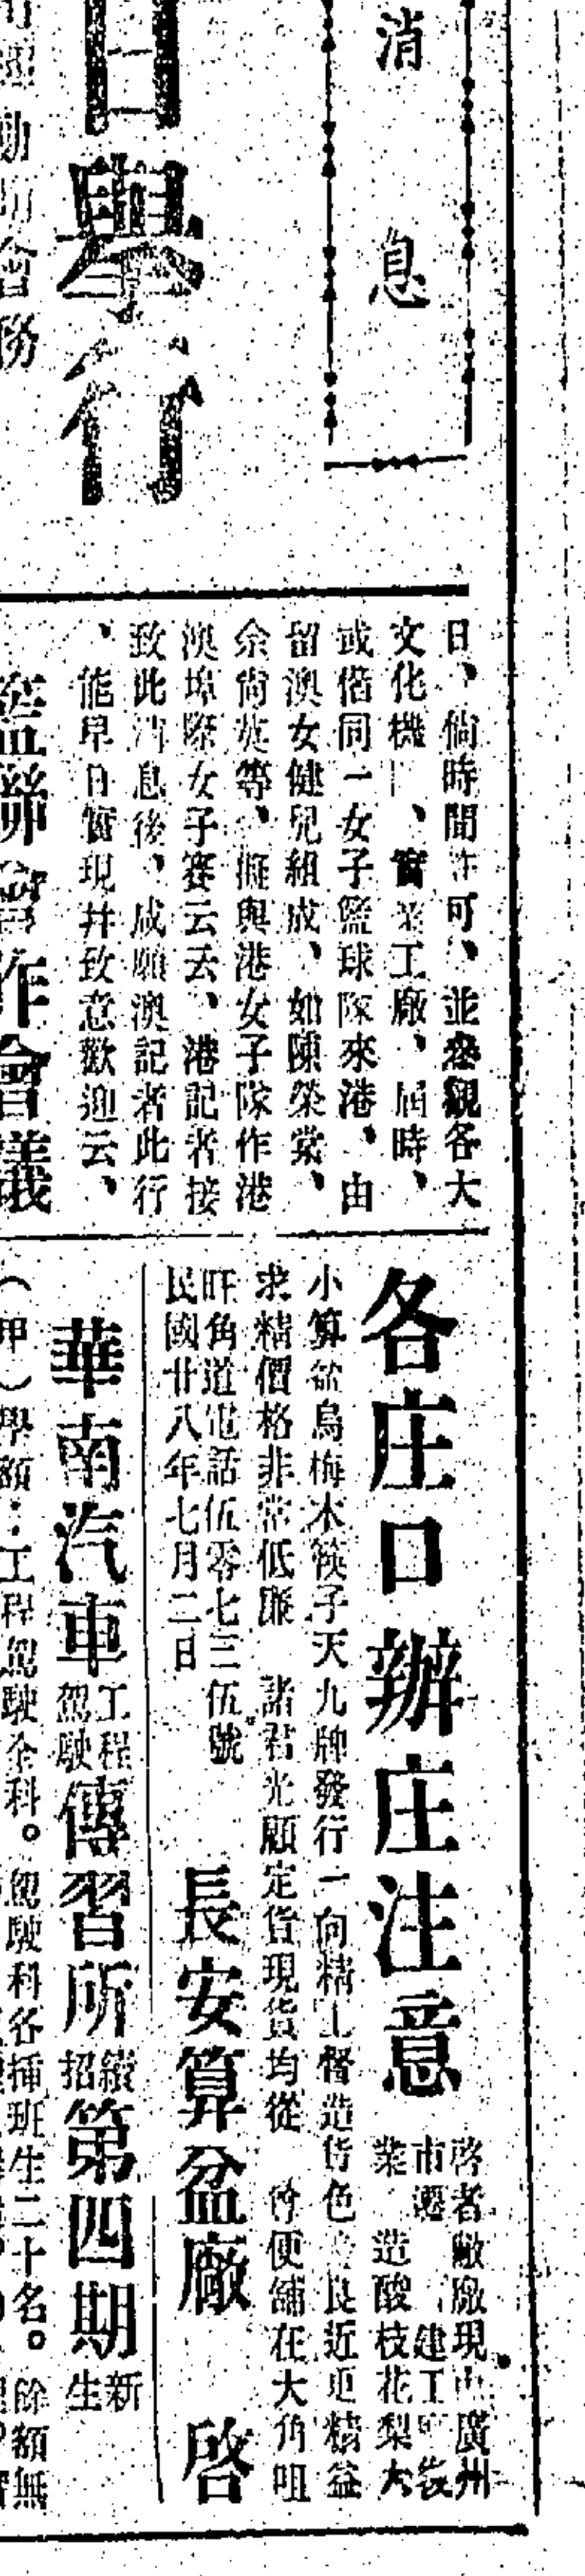 消息
日舉行
日、倘時間許可、並參觀各大
文化機、實業工廠、屆時、
或偕同一女子籃球隊來港、由
留澳女健兒組成、如陳榮棠、
余尙英等、擬與港女子隊作港
澳埠際女子賽云云、港記者接
致此消息後、咸願澳記者此行
、能早日實現幷致意歡迎云、
籃聯會昨會議
各庄口辦庄注意
啓者敝廠現由廣州
市遷建工廠
業造酸枝花梨大
小算盆烏梅木筷子天九牌發行一向精工督造貨色良近更精益
求精價格非常低廉 諸君光顧定貨現貨均從 便舖在大角咀
旺角道電話伍零七三伍號
民國廿八年七月二日
長安算盆廠 啓
華南汽車工程駕駛傳習所續招第四期新生
(甲)學額：工程駕駛全科。駕駛科各揷班生二十名。餘額無